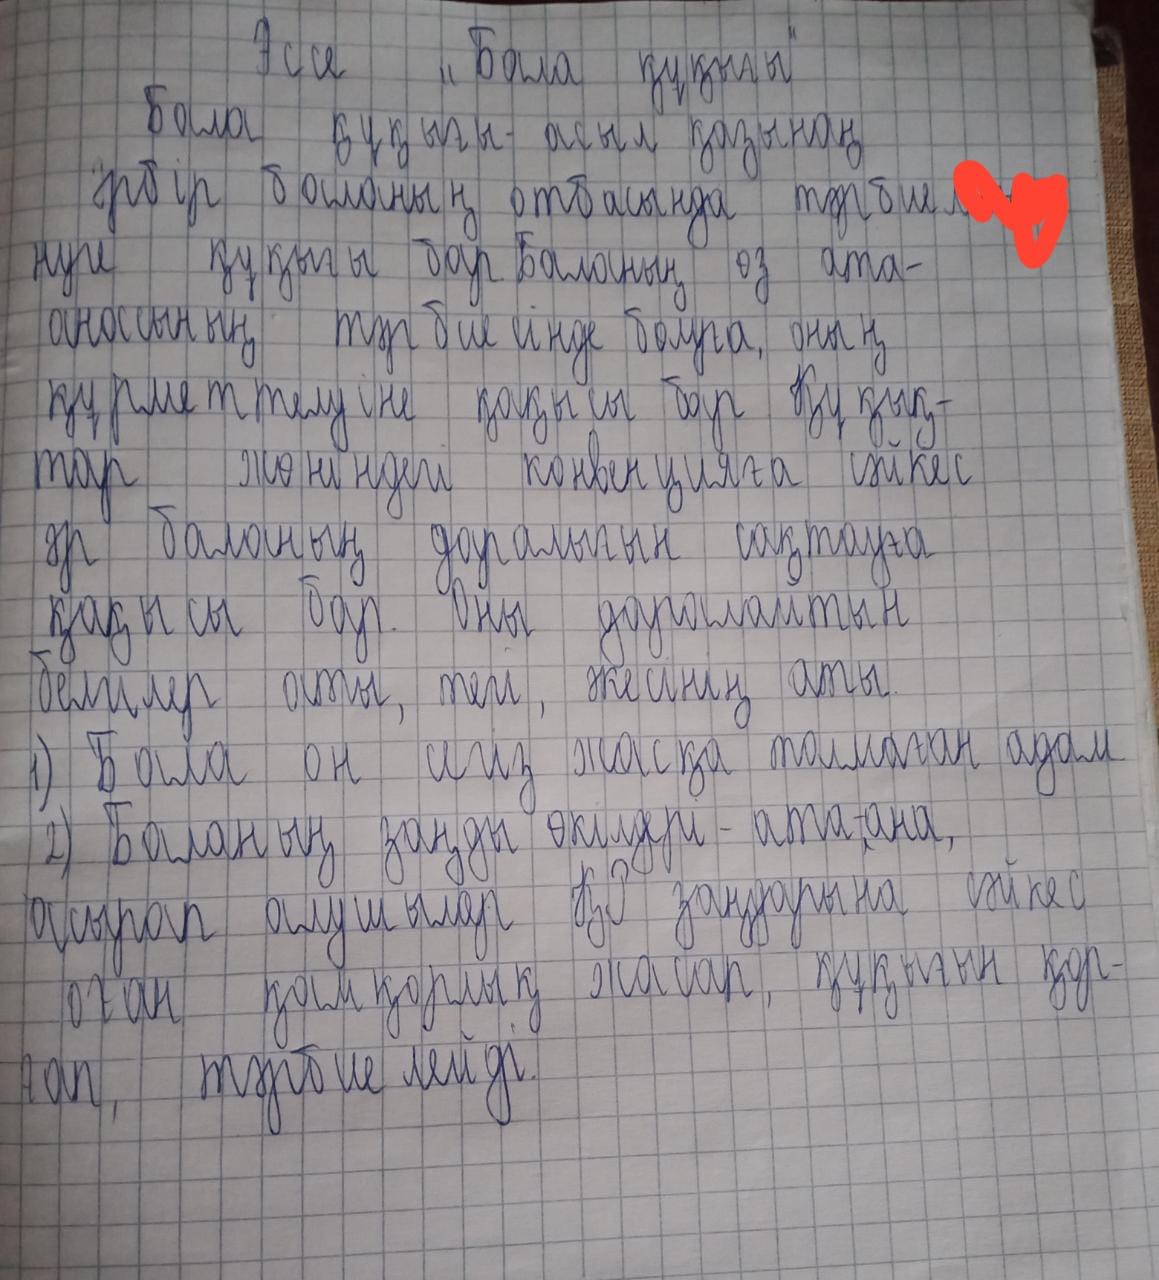 Эссе „Бала құқығы"
Бала құқығы - асыл қазынаң
әрбір баланың отбасында тәрбиеле
нуге құқығы бар Баланың өз ата-
анасының тәрбиесінде болуға, оның
құрметтелуіне қақысы бар Құқық-
тар жөніндегі конвенцияға сәйкес
әр баланың даралығын сақтауға
қақысы бар. Оны даралайтын
белгілер аты, тегі, әкесінің аты.
1) Бала он сегіз жасқа толмаған адам
2) Баланың заңды өкілдері - ата-ана,
асырап алушылар ҚР заңдарына сәйкес
оған қамқорлық жасап, құқығын қор-
ғап, тәрбиелейді.